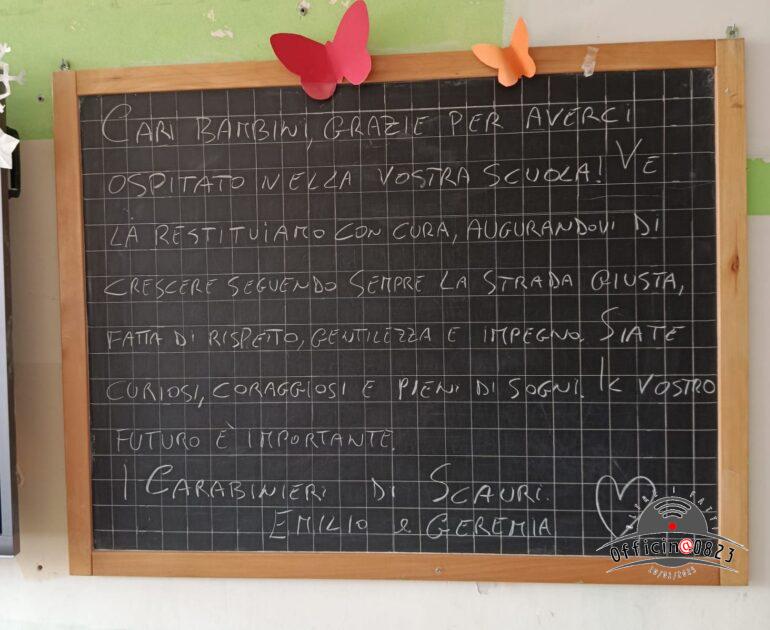 CARI BAMBINI, GRAZIE PER AVERCI
OSPITATO NELLA VOSTRA SCUOLA! VE
LA RESTITUIAMO CON CURA, AUGURANDOVI DI
CRESCERE SEGUENDO SEMPRE LA STRADA GIUSTA,
FATTA DI RISPETTO, GENTILEZZA E IMPEGNO. SIATE
CURIOSI, CORAGGIOSI E PIENI DI SOGNI. IL VOSTRO
FUTURO È IMPORTANTE.
I CARABINIERI DI SCAURI.
EMILIO e GEREMIA
OLTRE I FATTI
Officin@0823